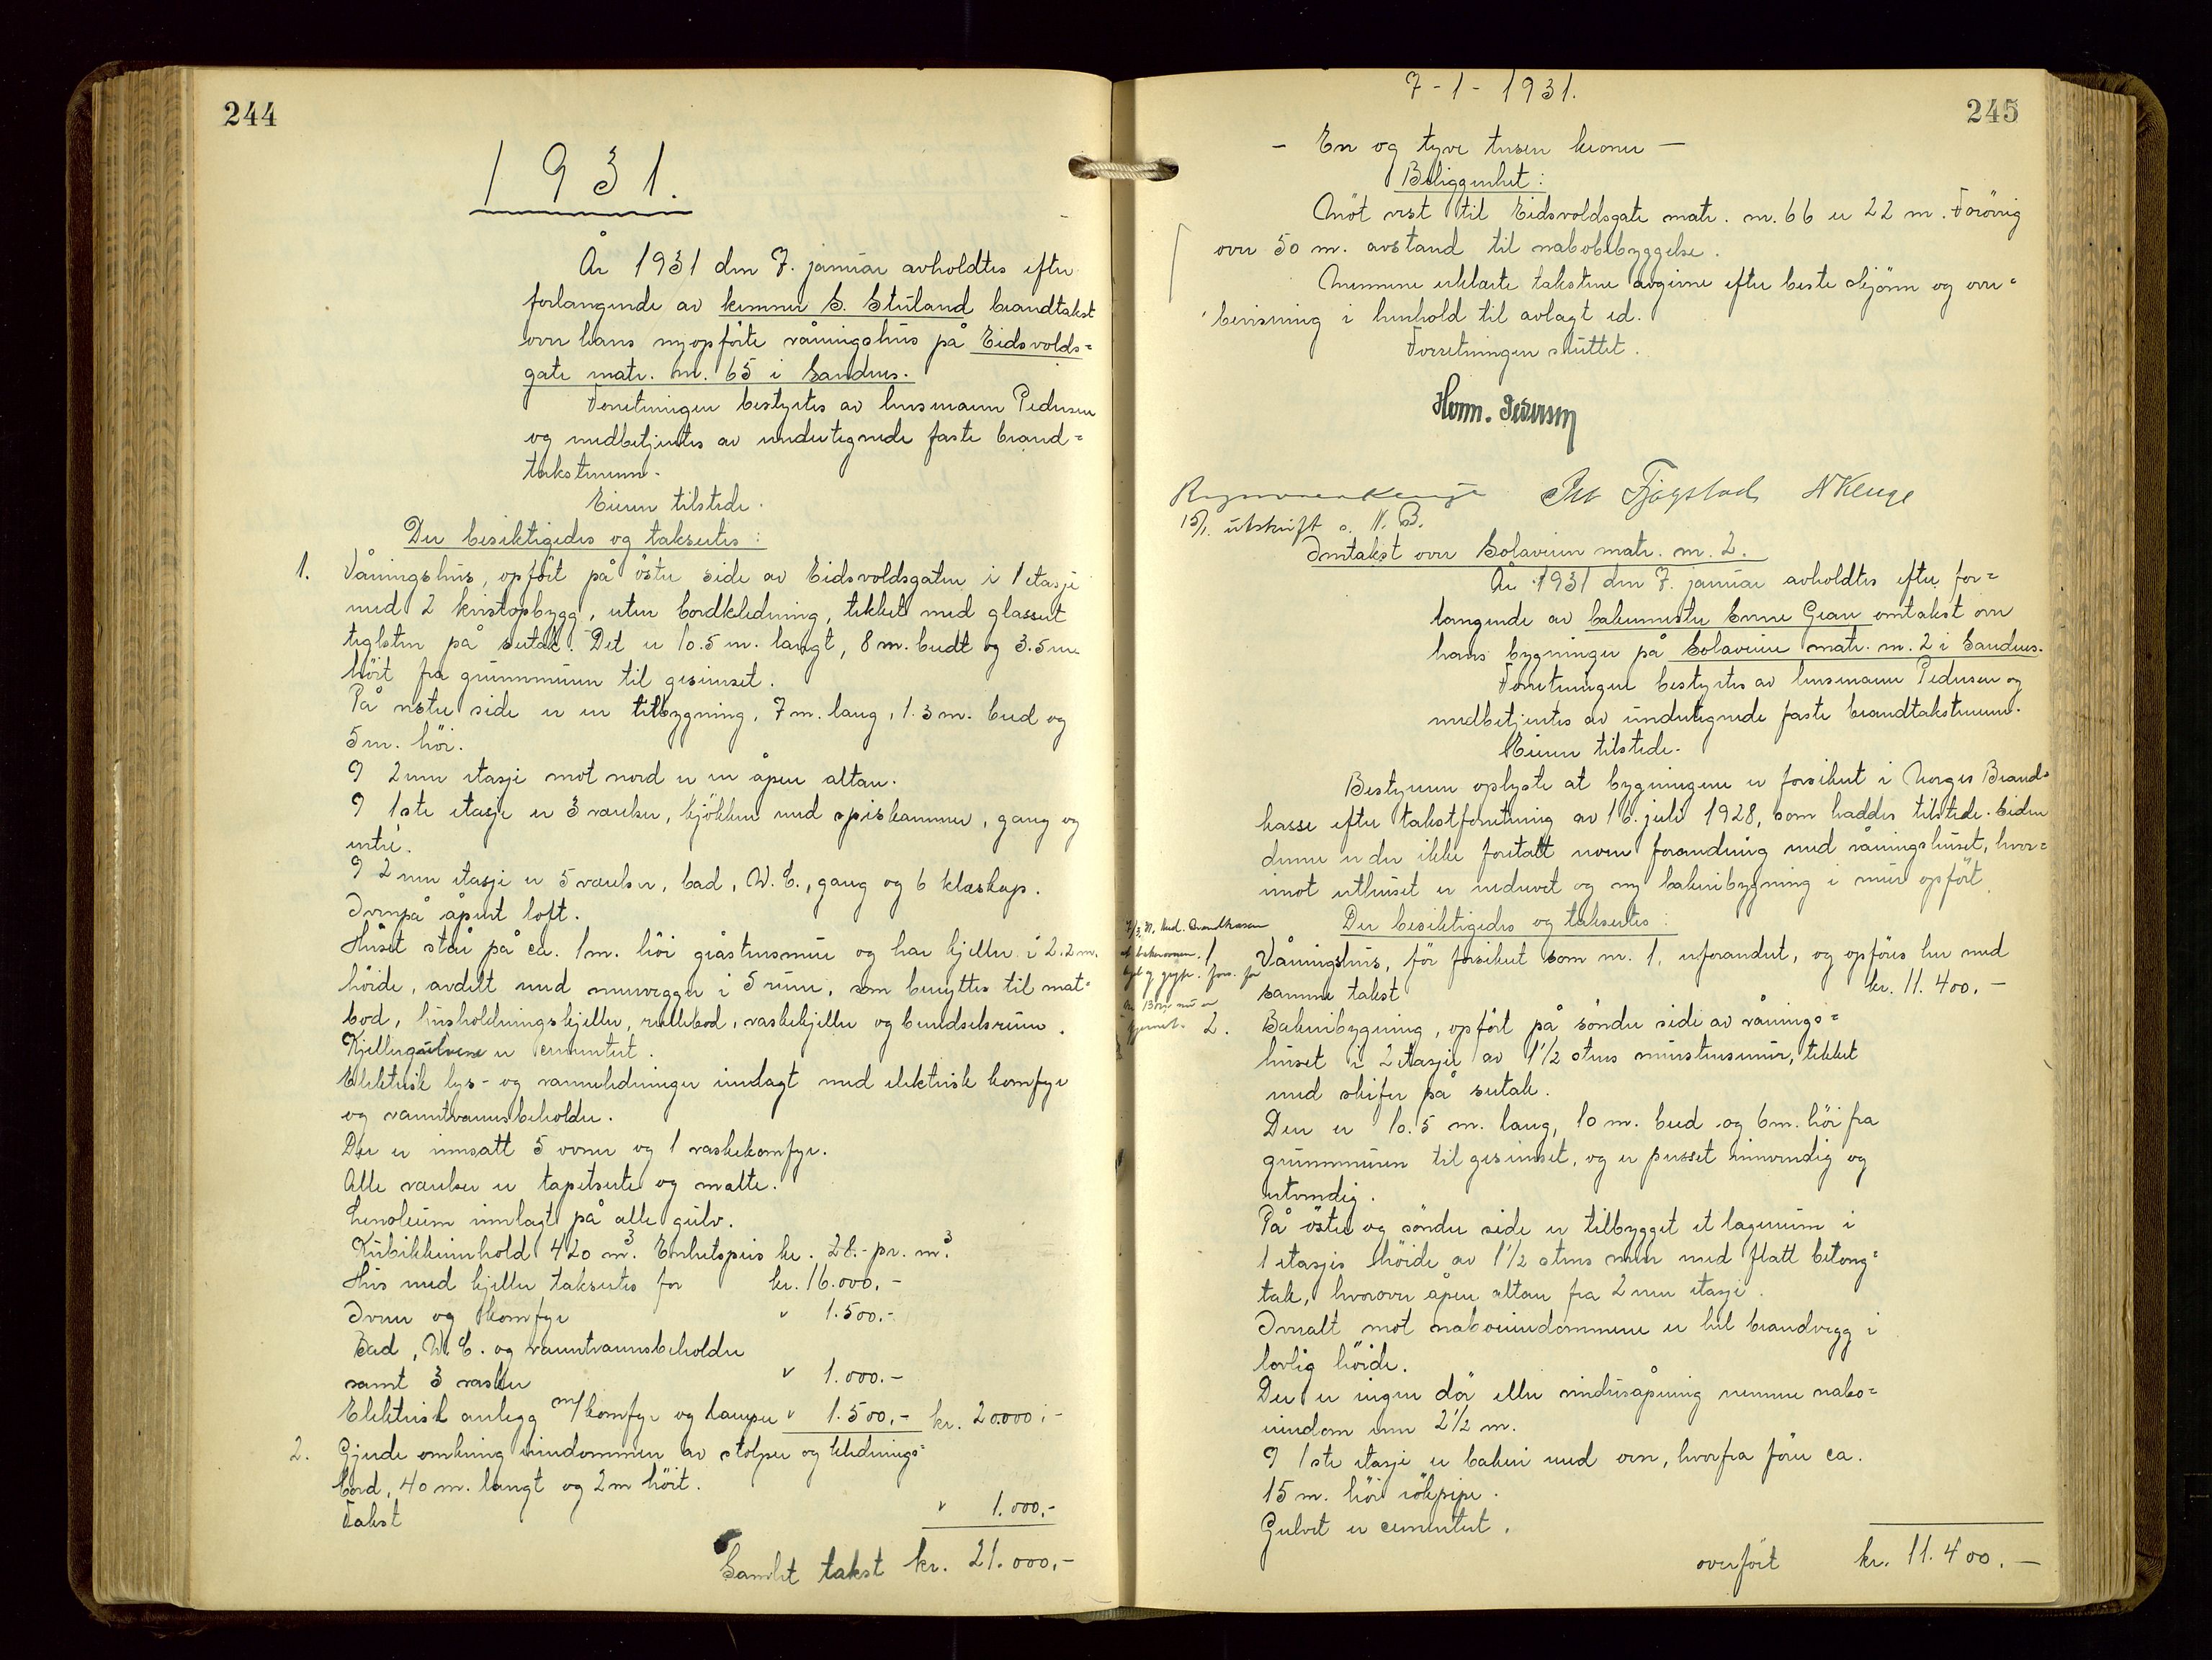 244
1931.
År 1931 den 7. januar avholdtes efter
forlangende av kemner S. Stuland brandtakst
over hans nyopförte våningshus på Eidsvolds-
gate matr. nr. 65 i Sandnes.
Forretningen bestyrtes av lensmann Pedersen
og medbetjentes av undertegnede faste brand-
takstmenn.
Eieren tilstede.
Der besiktigedes og taksertes:
1. Våningshus, opfört på östre side av Eidsvoldsgaten i 1 etasje
med 2 kvistopbygg, uten bordkledning, tekket med glassert
teglsten på sutak. Det er 10.5 m. langt, 8 m. bredt og 3.5 m.
höit fra grunnmuren til gesimset.
På vestre side er en tilbygning, 7 m. lang, 1.3 m. bred og
5 m. höi.
I 2nen etasje mot nord er en åpen altan.
I 1ste etasje er 3 værelser, kjökken med spiskammer, gang og
entré.
I 2nen etasje er 5 værelser, bad, W.C., gang og 6 klæskap.
Ovenpå åpent loft.
Huset står på ca. 1m. höi gråstensmur og har kjeller i 2.2 m.
höide, avdelt med murvegger i 5 rum, som benyttes til mat-
bod, husholdningskjeller, rullebod, vaskekjeller og brendselsrum.
Kjellergulvene er cementert.
Elektrisk lys- og varmeledninger innlagt med elektrisk komfyr
og varmtvannsbeholder.
Der er innsatt 5 ovner og 1 vaskekomfyr.
Alle værelser er tapetserte og malte.
Lenoleum innlagt på alle gulv.
Kubikkinnhold 420 m³. Enhetspris kr. 28.- pr. m³.
Hus med kjeller taksertes for kr. 16.000.-
Ovner og komfyr " 1.500.-
Bad, W.C. og varmtvannsbeholder
samt 3 vasker " 1.000.-
Elektrisk anlegg m/komfyr og lamper " 1.500.- kr. 20.000.-
2. Gjerde omkring eiendommen av stolper og klednings-
bord, 40 m. langt og 2 m höit.
Takst " 1.000.-
Samlet takst kr. 21.000.-
7-1-1931.
245
- En og tyve tusen kroner -
Beliggenhet:
Möt vest til Eidsvoldsgate matr. nr. 66 er 22 m. Forövrig
over 50 m. avstand til nabobebyggelse.
Mennene erklærte takstene avgivne efter beste skjönn og over-
bevisning i henhold til avlagt ed.
Forretningen sluttet.
Herm. Pedersen
Fjogstad N Kluge
15/1. utskrift s. N. B.
Omtakst over Solaveien matr. nr. 2.
År 1931 den 7. januar avholdtes efter for-
langende av bakermester Grau omtakst over
hans bygninger på Solaveien matr. nr. 2 i Sandnes.
Forretningen bestyrtes av lensmann Pedersen og
medbetjentes av undertegnede faste brandtakstmenn.
Eieren tilstede.
Bestyreren oplyste at bygningene er forsikret i Norges Brand-
kasse efter takstforretning av 16. juli 1928, som haddes tilstede. Siden
denne er der ikke foretatt noen forandring med våningshuset, hvor-
imot uthuset er nedrevet og ny bakeribygning i mur opfört.
Der besiktigedes og taksertes:
1. Våningshus, för forsikret som nr. 1, uforandret, og opföres her med
samme takst kr. 11.400.-
2. Bakeribygning, opfört på söndre side av vånings-
huset i 2 etasjer av 1½ stens murstensmur, tekket
med skifer på sutak.
Den er 10.5 m. lang, 10 m. bred og 6 m. höi fra
grunnmuren til gesimset, og er pusset innvendig og
utvendig.
På östre og söndre side er tilbygget et lagerrum i
1 etasjes höide av 1½ stens mur med flatt betong-
tak, hvorover åpen altan fra 2nen etasje.
Overalt mot naboeiendommene er hel brandvegg i
lovlig höide.
Der er ingen dör eller vindusåpning nermere nabo-
eiendom enn 2½ m.
I 1ste etasje er bakeri med ovn, hvorfra förer ca.
15 m. höi rökpipe.
Gulvet er cementert.
overfört kr. 11.400.-